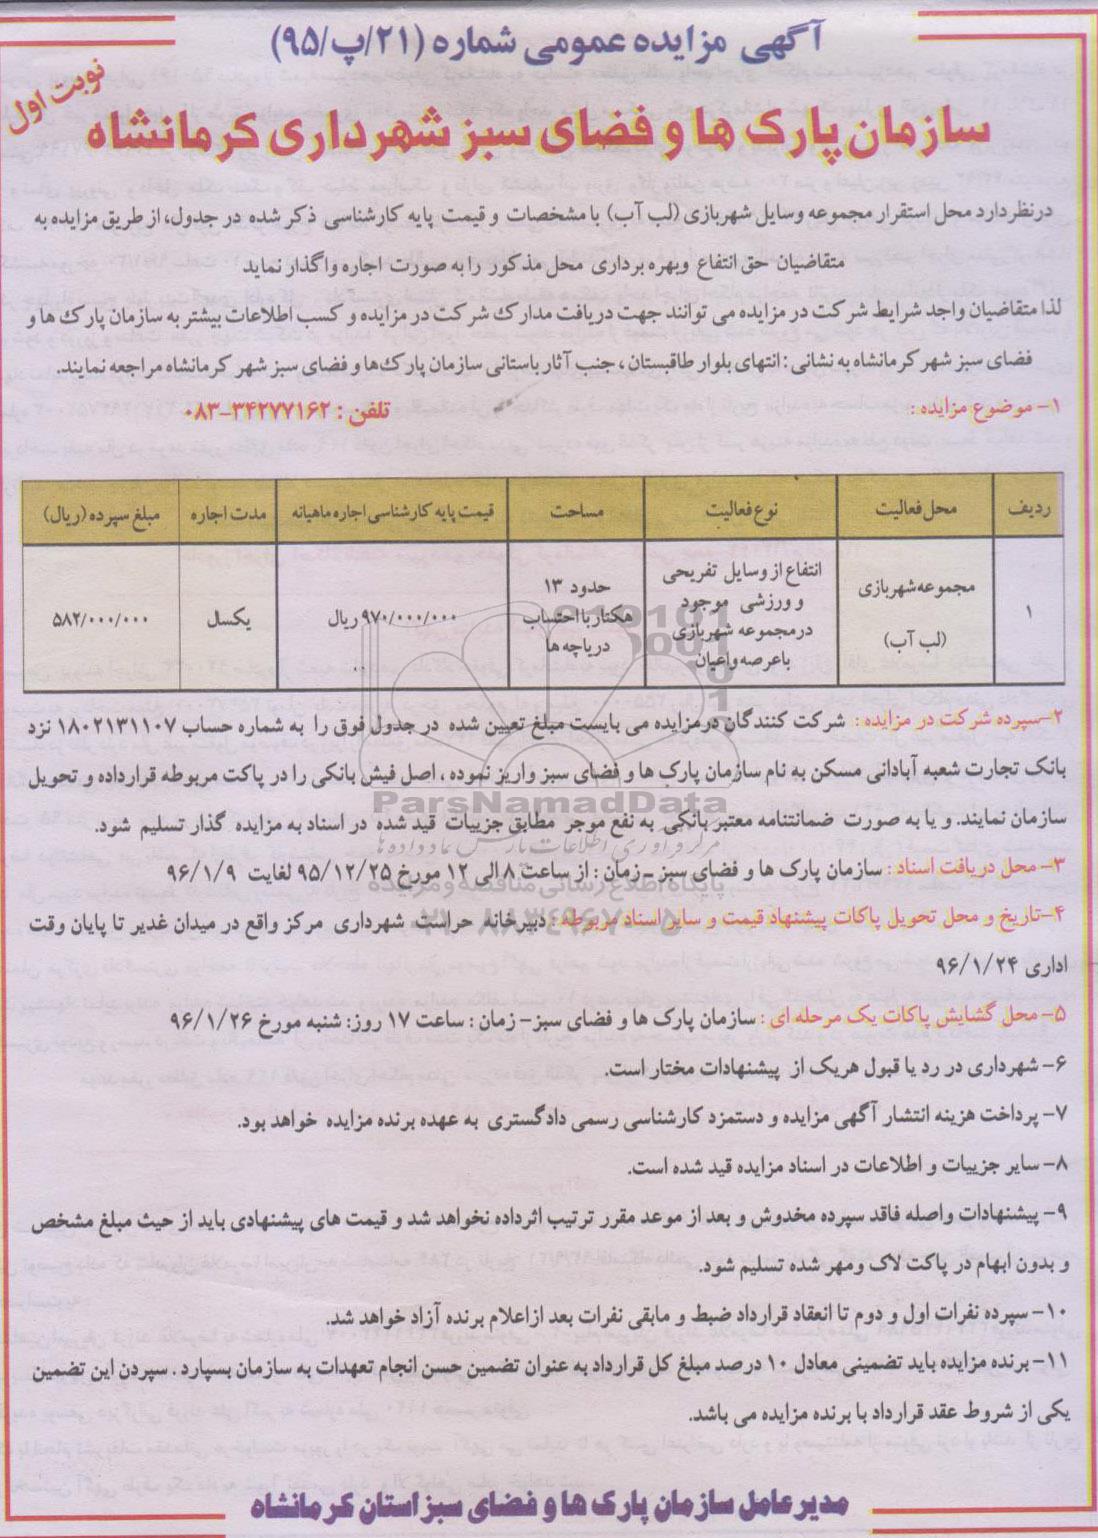 آگهی مزایده عمومی شماره (۲۱/پ/۹۵)
نوبت اول
سازمان پارک ها و فضای سبز شهرداری کرمانشاه
درنظردارد محل استقرار مجموعه وسایل شهربازی (لب آب) با مشخصات و قیمت پایه کارشناسی ذکر شده در جدول، از طریق مزایده به
متقاضیان حق انتفاع وبهره برداری محل مذکور را به صورت اجاره واگذار نماید
لذا متقاضیان واجد شرایط شرکت در مزایده می توانند جهت دریافت مدارک شرکت در مزایده و کسب اطلاعات بیشتر به سازمان پارک ها و
فضای سبز شهر کرمانشاه به نشانی : انتهای بلوار طاقبستان ، جنب آثار باستانی سازمان پارک‌ها و فضای سبز شهر کرمانشاه مراجعه نمایند.
۱- موضوع مزایده : تلفن : ۳۴۲۷۷۱۶۲-۰۸۳
ردیف محل فعالیت نوع فعالیت مساحت قیمت پایه کارشناسی اجاره ماهیانه مدت اجاره مبلغ سپرده (ریال)
۱ مجموعه شهربازی (لب آب) انتفاع از وسایل تفریحی و ورزشی موجود درمجموعه شهربازی باعرصه واعیان حدود ۱۳ هکتار با احتساب دریاچه ها ۹۷۰/۰۰۰/۰۰۰ ریال یکسال ۵۸۲/۰۰۰/۰۰۰
۲-سپرده شرکت در مزایده : شرکت کنندگان درمزایده می بایست مبلغ تعیین شده در جدول فوق را به شماره حساب ۱۸۰۲۱۳۱۱۰۷ نزد
بانک تجارت شعبه آبادانی مسکن به نام سازمان پارک ها و فضای سبز واریز نموده ، اصل فیش بانکی را در پاکت مربوطه قرارداده و تحویل
ParsNamadData
سازمان نمایند. و یا به صورت ضمانتنامه معتبر بانکی به نفع موجر مطابق جزییات قید شده در اسناد به مزایده گذار تسلیم شود.
مرکز فرآوری اطلاعات پارس نماد داده ها
۳- محل دریافت اسناد : سازمان پارک ها و فضای سبز -زمان : از ساعت ۸ الی ۱۲ مورخ ۹۵/۱۲/۲۵ لغایت ۹۶/۱/۹
پایگاه اطلاع رسانی مناقصه و مزایده
۴-تاریخ و محل تحویل پاکات پیشنهاد قیمت و سایر اسناد مربوطه : دبیرخانه حراست شهرداری مرکز واقع در میدان غدیر تا پایان وقت
اداری ۹۶/۱/۲۴
۵- محل گشایش پاکات یک مرحله ای : سازمان پارک ها و فضای سبز- زمان : ساعت ۱۷ روز: شنبه مورخ ۹۶/۱/۲۶
۶- شهرداری در رد یا قبول هریک از پیشنهادات مختار است.
۷- پرداخت هزینه انتشار آگهی مزایده و دستمزد کارشناسی رسمی دادگستری به عهده برنده مزایده خواهد بود.
۸- سایر جزییات و اطلاعات در اسناد مزایده قید شده است.
۹- پیشنهادات واصله فاقد سپرده مخدوش و بعد از موعد مقرر ترتیب اثرداده نخواهد شد و قیمت های پیشنهادی باید از حیث مبلغ مشخص
و بدون ابهام در پاکت لاک ومهر شده تسلیم شود.
۱۰- سپرده نفرات اول و دوم تا انعقاد قرارداد ضبط و مابقی نفرات بعد ازاعلام برنده آزاد خواهد شد.
۱۱- برنده مزایده باید تضمینی معادل ۱۰ درصد مبلغ کل قرارداد به عنوان تضمین حسن انجام تعهدات به سازمان بسپارد . سپردن این تضمین
یکی از شروط عقد قرارداد با برنده مزایده می باشد.
مدیرعامل سازمان پارک ها و فضای سبز استان کرمانشاه